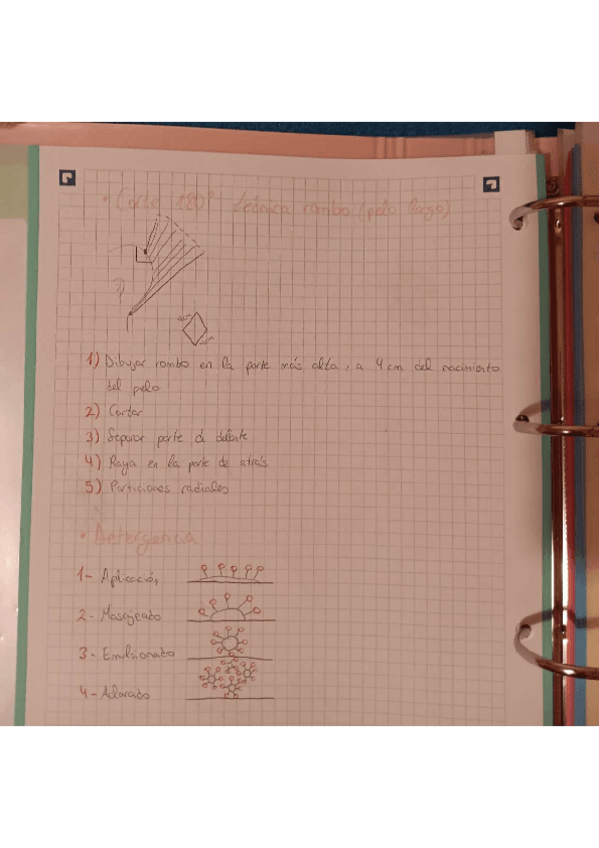 • Corte 180° técnica rombo (pelo largo)
1) Dibujar rombo en la parte más alta, a 4cm del nacimiento
del pelo
2) Cortar
3) Separar parte de delante
4) Raya en la parte de atrás
5) Particiones radiales
• Detergencia
1- Aplicación
2- Masajeado
3- Emulsionado
4- Aclarado